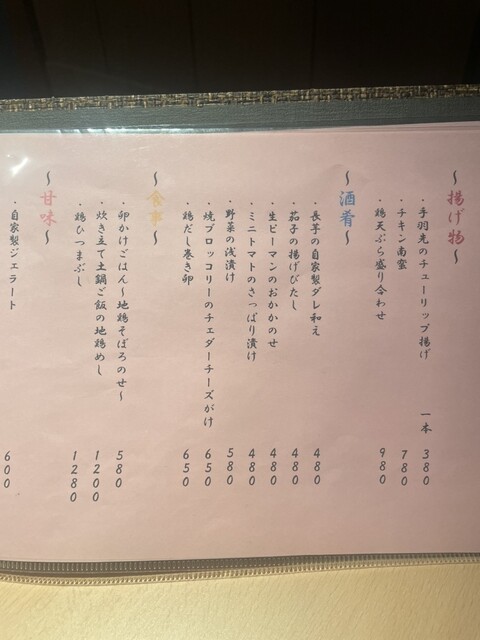 ～揚げ物～
・手羽先のチューリップ揚げ 一本 380
・チキン南蛮 780
・鶏天ぷら盛り合わせ 980
～酒肴～
・長芋の自家製ダレ和え 480
・茄子の揚げびたし 480
・生ピーマンのおかかのせ 480
・ミニトマトのさっぱり漬け 480
・野菜の浅漬け 580
・焼ブロッコリーのチェダーチーズがけ 650
・鶏だし巻き卵 650
～食事～
・卵かけごはん～地鶏そぼろのせ～ 580
・炊き立て土鍋ご飯の地鶏めし 1200
・鶏ひつまぶし 1280
～甘味～
・自家製ジェラート 600